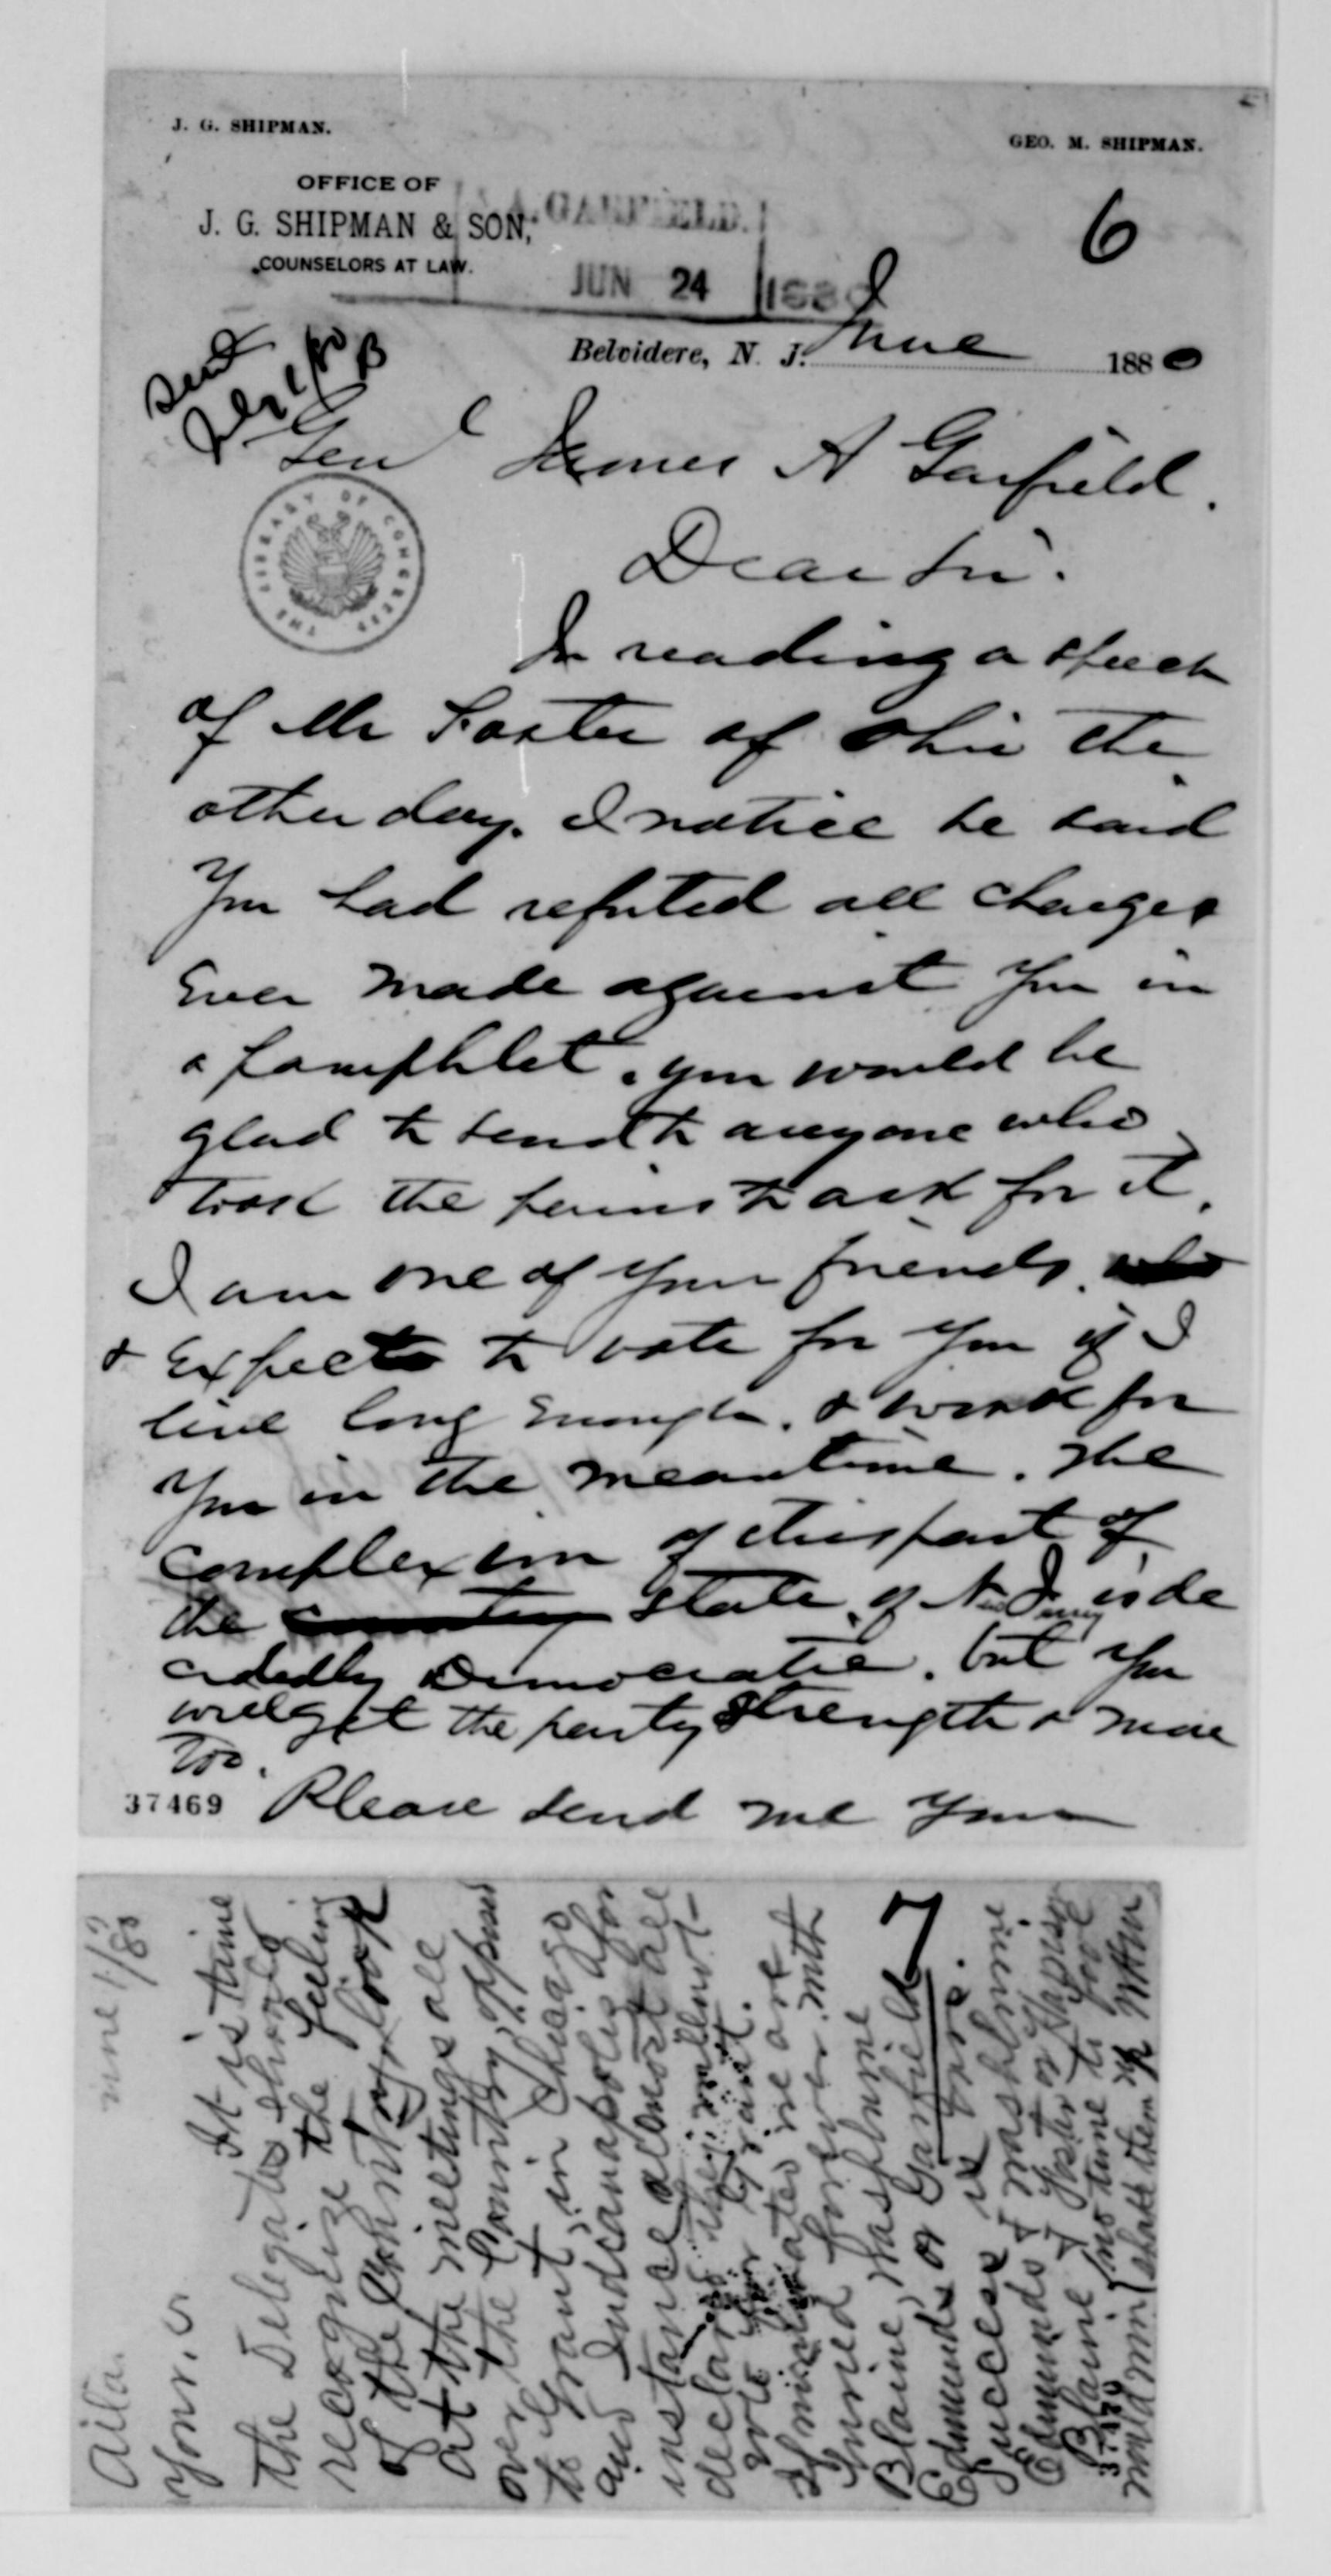 J. G. SHIPMAN.
GEO. M. SHIPMAN.
6
OFFICE OF
J. G. SHIPMAN & SON,
COUNSELORS AT LAW.
A. GARFIELD.
JUN 24 1880
Belvidere, N. J. June 1880
Sent
July 1/80
B
Genl James A Garfield.
THE LIBRARY OF CONGRESS
Dear Sir.
In reading a speech
of Mr Foster of Ohio the
other day. I notice he said
You had refuted all charges
Ever made against You in
a pamphlet. you would be
glad to send to anyone who
took the pains to ask for it.
I am one of your friends. who
& Expects to vote for You if I
live long Enough. & work for
You in the meantime. The
complexion of this part of
the country State of New Jersey is de
cidedly Democratic. but You
will get the party strength & more
too.
37469 Please send me your
7
June 1/80
Phila.
Your.s
It is time
the Delegates should
recognize the feeling
of the Country, look
at the meetings all
over the Country, opposed
to Grant, in Chicago
and Indianapolis for
instance almost all
declare they will not
vote for Grant.
If nominated we are
buried forever. with
Blaine, Washburne
Edmunds or Garfield
Success is sure.
Edmunds & Washburne
Blaine & Foster or Garfield
no time to fool
would win shake them up
37470